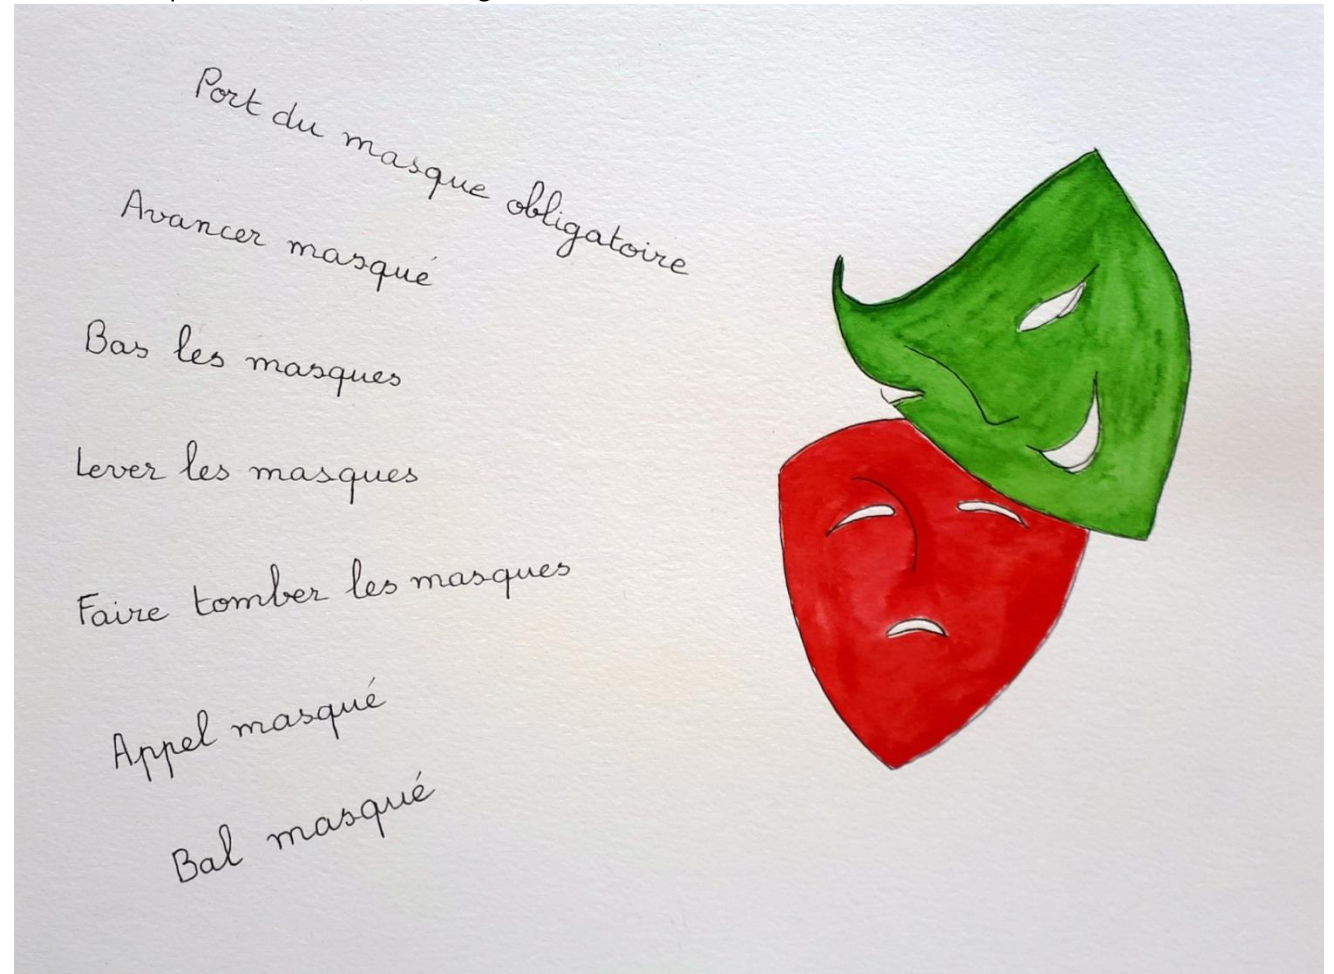 Port du masque obligatoire
Avancer masqué
Bas les masques
Lever les masques
Faire tomber les masques
Appel masqué
Bal masqué